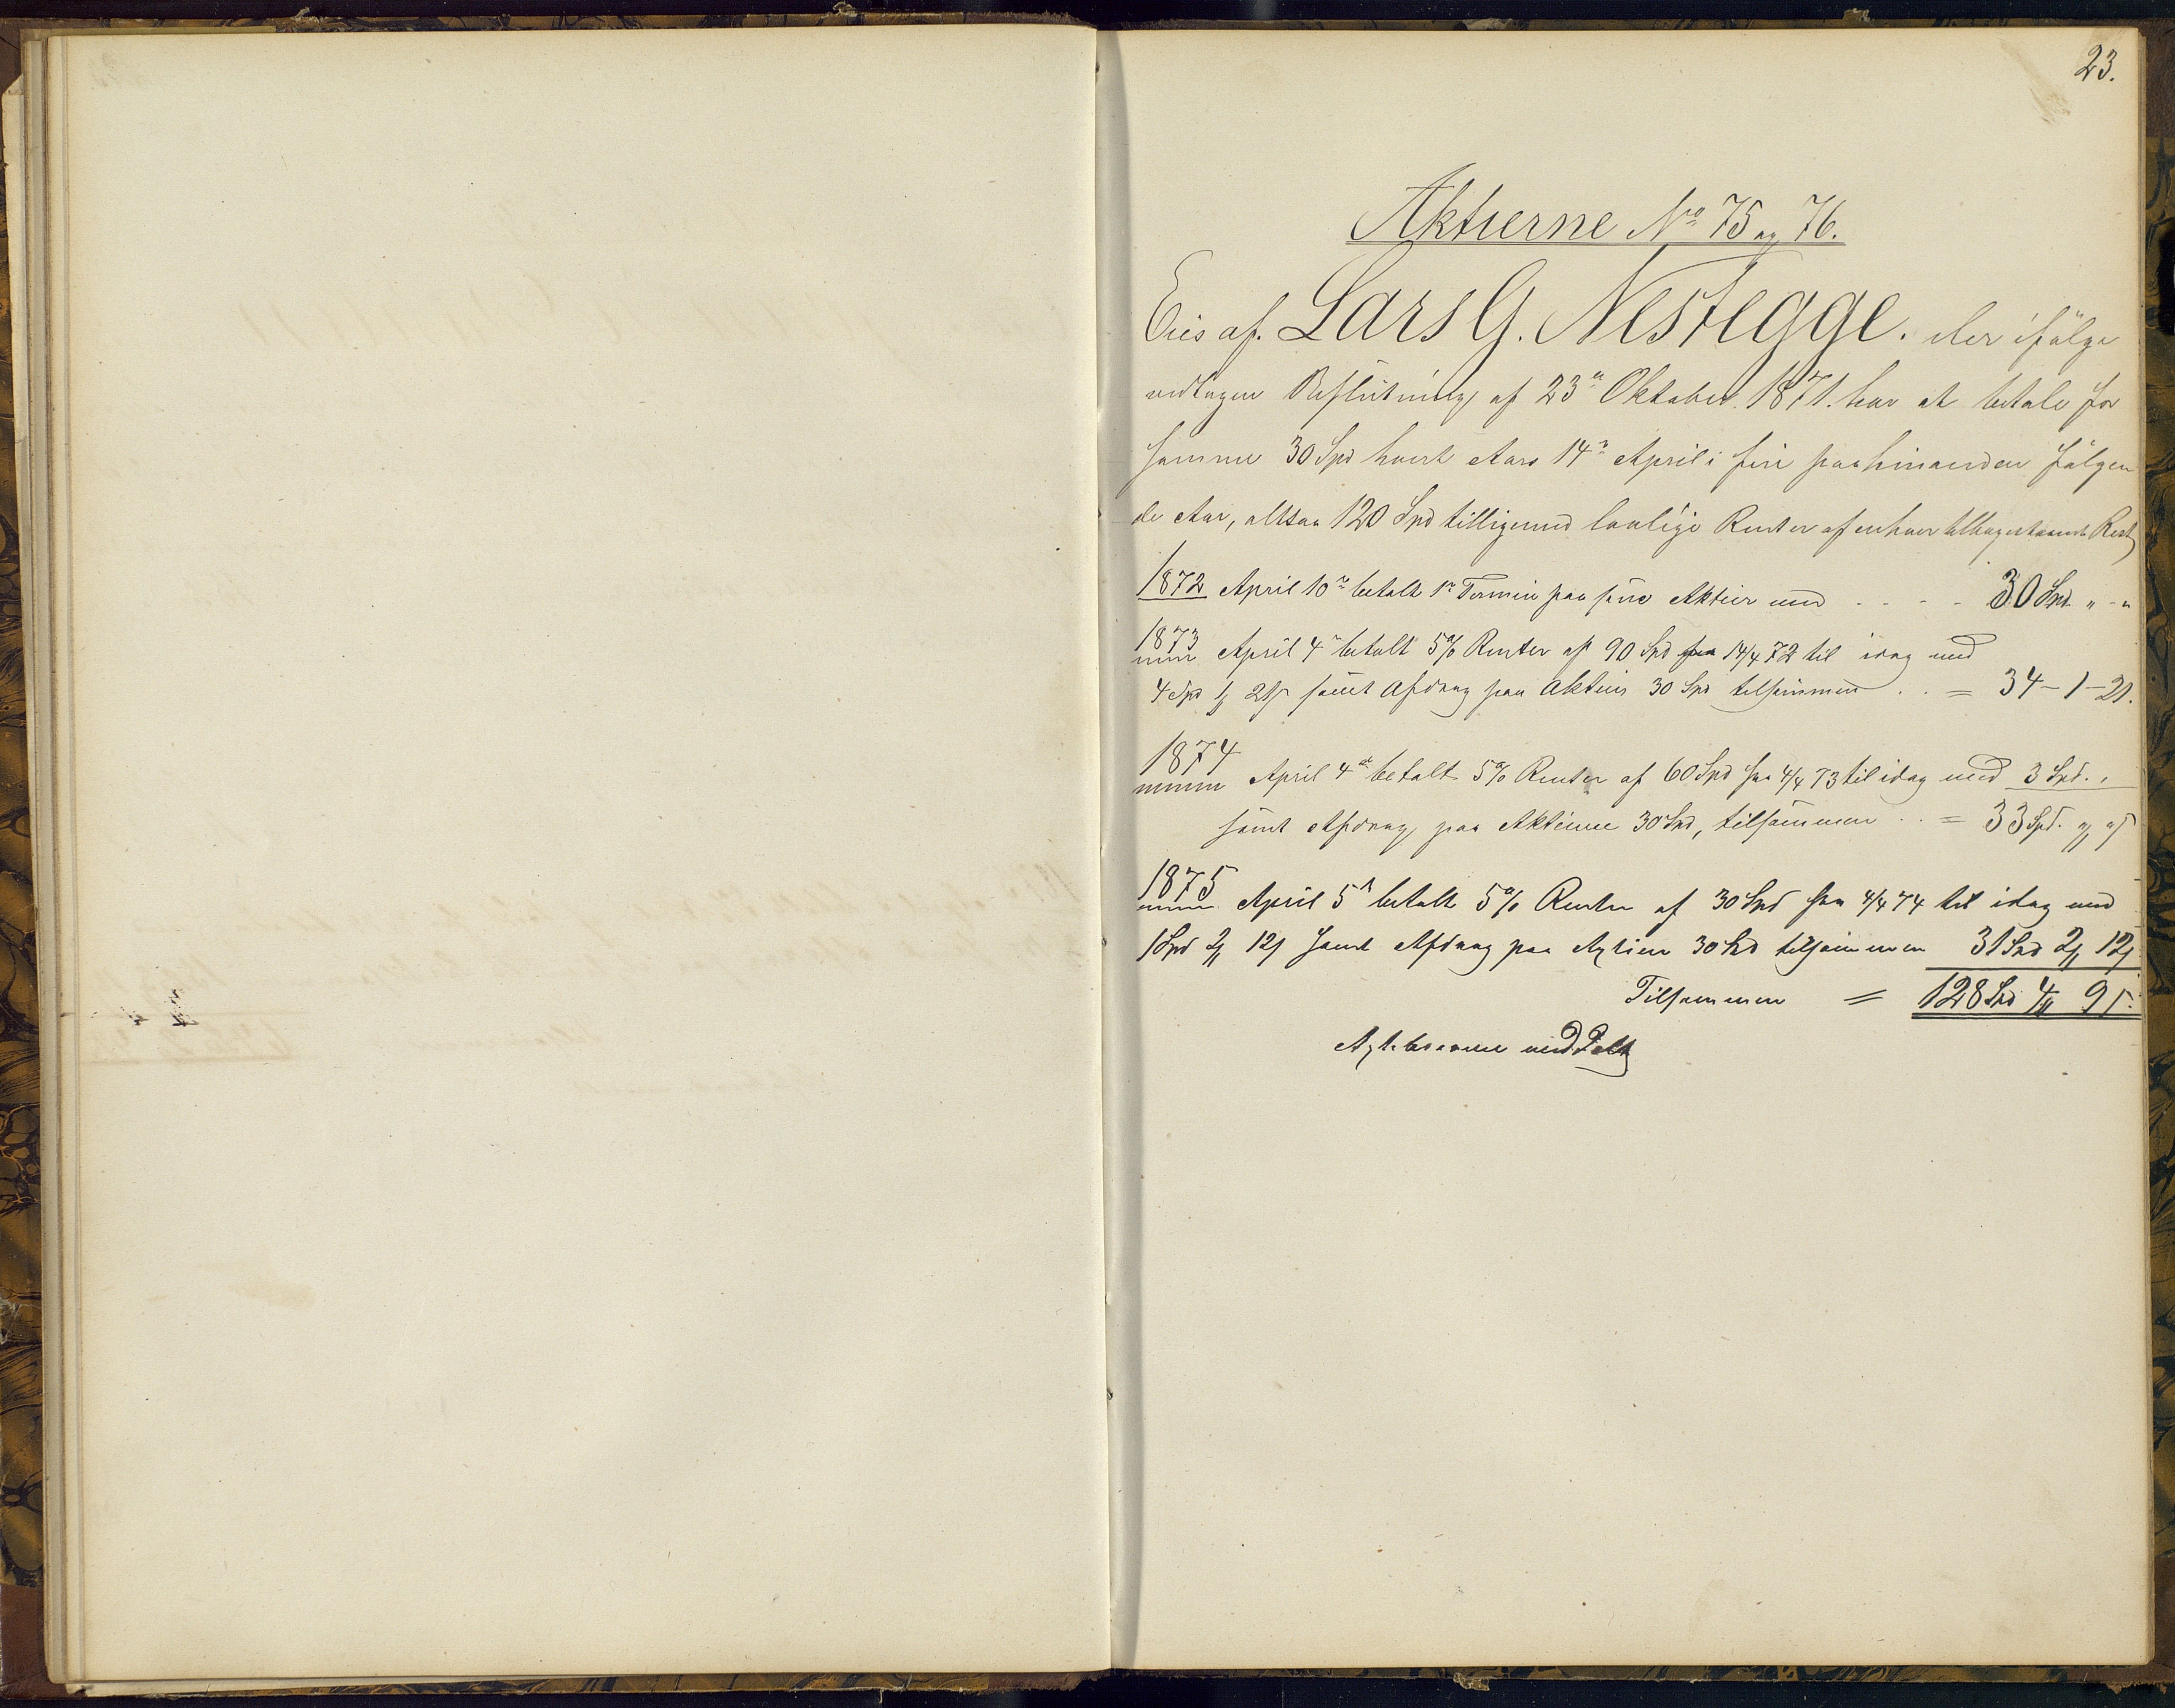 23.
Aktierne No 75 og 76.
Eies af. Lars G. Nestegge. der ifølge
vedtagen Beslutning af 23n Oktober 1871. har at betale for
samme 30 Spd hvert Aars 14n April i fire paahinanden følgen
de Aar, altsaa 120 Spd tilligemed lovlige Renter af enhver tilbagestaaende Rest
1872 April 10n betalt 1n Termin paa sine Aktier med - - - - 30 Spd. " - "
1873
April 4n betalt 5% Renter af 90 Spd fra 14/4 72 til idag med
4 Spd 1 21 samt Afdrag paa Aktien 30 Spd tilsammen . . = 34 - 1 - 21.
1874
April 4de betalt 5% Renter af 60 Spd fra 4/4 73 til idag med 3 Spd. "
samt Afdrag paa Aktierne 30 Spd, tilsammen . . = 33 Spd. " "
1875
April 5n betalt 5% Renter af 30 Spd fra 4/4 74 til idag med
1 Spd 2 12 samt Afdrag paa Aktien 30 Spd tilsammen 31 Spd 2 12
Tilsammen = 128 Spd 4 9